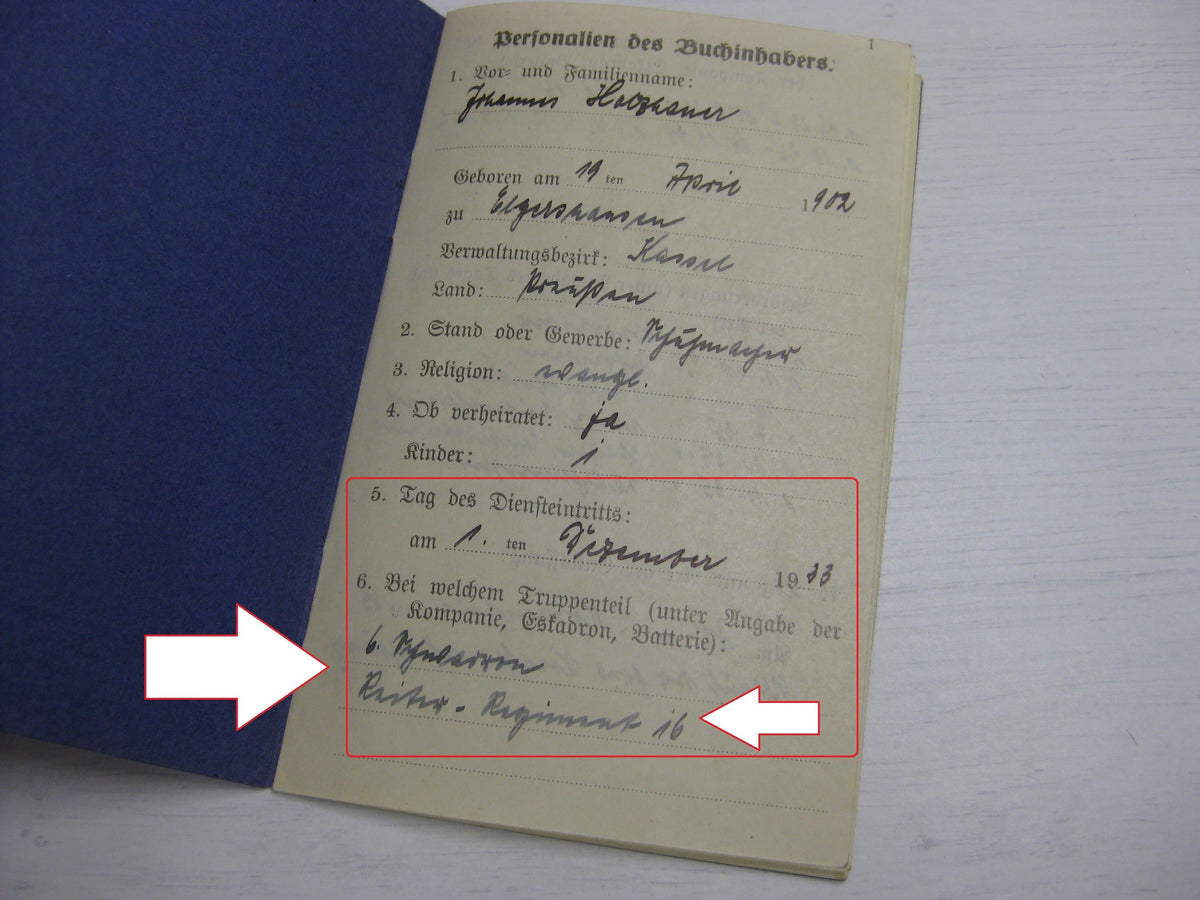 1
Personalien des Buchinhabers.
1. Vor- und Familienname:
Johannes Holzhauer
Geboren am 19 ten April 1902
zu Elgershausen
Verwaltungsbezirk: Kassel
Land: Preußen
2. Stand oder Gewerbe: Schuhmacher
3. Religion: evangl.
4. Ob verheiratet: ja
Kinder: 1
5. Tag des Diensteintritts:
am 1. ten Dezember 1933
6. Bei welchem Truppenteil (unter Angabe der
Kompanie, Eskadron, Batterie):
6. Schwadron
Reiter-Regiment 16